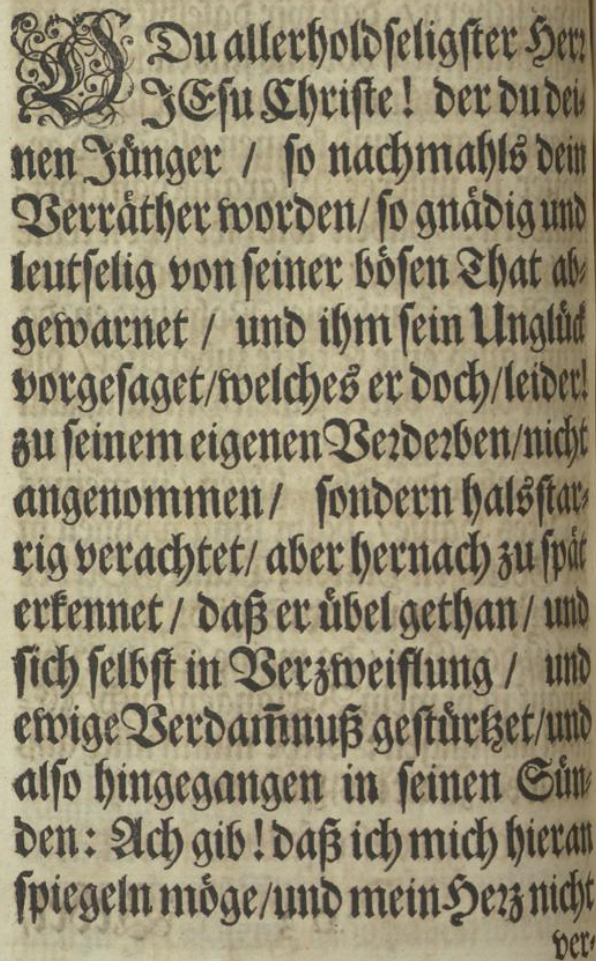 O Du allerholdseligster Herr
JEsu Christe! der du dei-
nen Jünger / so nachmahls dein
Verräther worden/ so gnädig und
leutselig von seiner bösen That ab-
gewarnet / und ihm sein Unglück
vorgesaget/welches er doch/leider!
zu seinem eigenen Verderben/nicht
angenommen/ sondern halsstar-
rig verachtet/ aber hernach zu spät
erkennet / daß er übel gethan/ und
sich selbst in Verzweiflung / und
ewige Verdam̃nuß gestürtzet/und
also hingegangen in seinen Sün-
den: Ach gib! daß ich mich hieran
spiegeln möge/und mein Herz nicht
ver-